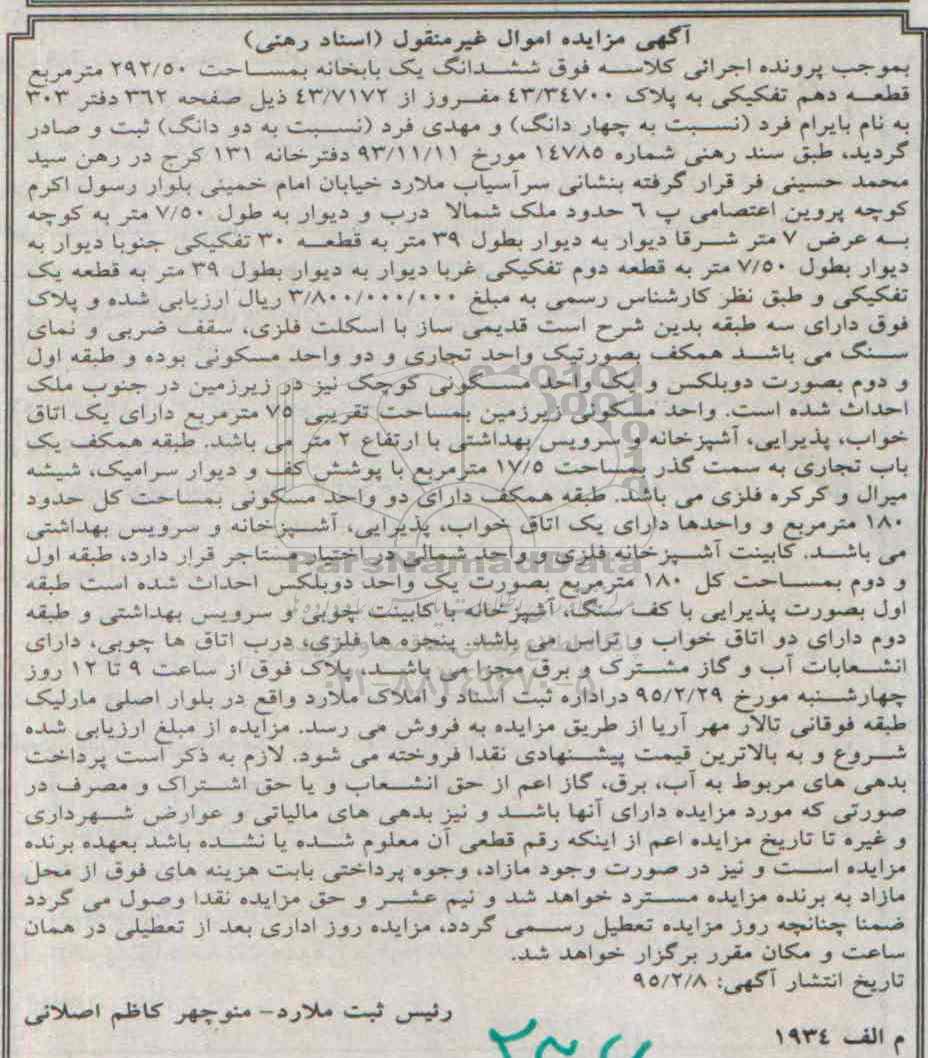 آگهی مزایده اموال غیرمنقول (اسناد رهنی)
بموجب پرونده اجرائی کلاسه فوق ششدانگ یک بابخانه بمساحت ۲۹۲/۵۰ مترمربع
قطعه دهم تفکیکی به پلاک ۴۳/۳٤۷۰۰ مفروز از ٤۳/۷۱۷۲ ذیل صفحه ۳٦۲ دفتر ۳۰۳
به نام بایرام فرد (نسبت به چهار دانگ) و مهدی فرد (نسبت به دو دانگ) ثبت و صادر
گردید، طبق سند رهنی شماره ۱٤۷۸۵ مورخ ۹۳/۱۱/۱۱ دفترخانه ۱۳۱ کرج در رهن سید
محمد حسینی فر قرار گرفته بنشانی سرآسیاب ملارد خیابان امام خمینی بلوار رسول اکرم
کوچه پروین اعتصامی پ ٦ حدود ملک شمالا درب و دیوار به طول ۷/۵۰ متر به کوچه
به عرض ۷ متر شرقا دیوار به دیوار بطول ۳۹ متر به قطعه ۳۰ تفکیکی جنوبا دیوار به
دیوار بطول ۷/۵۰ متر به قطعه دوم تفکیکی غربا دیوار به دیوار بطول ۳۹ متر به قطعه یک
تفکیکی و طبق نظر کارشناس رسمی به مبلغ ۳/۸۰۰/۰۰۰/۰۰۰ ریال ارزیابی شده و پلاک
فوق دارای سه طبقه بدین شرح است قدیمی ساز با اسکلت فلزی، سقف ضربی و نمای
سنگ می باشد همکف بصورتیک واحد تجاری و دو واحد مسکونی بوده و طبقه اول
و دوم بصورت دوبلکس و یک واحد مسکونی کوچک نیز در زیرزمین در جنوب ملک
احداث شده است. واحد مسکونی زیرزمین بمساحت تقریبی ۷۵ مترمربع دارای یک اتاق
خواب، پذیرایی، آشپزخانه و سرویس بهداشتی با ارتفاع ۲ متر می باشد. طبقه همکف یک
باب تجاری به سمت گذر بمساحت ۱۷/۵ مترمربع با پوشش کف و دیوار سرامیک، شیشه
میرال و کرکره فلزی می باشد. طبقه همکف دارای دو واحد مسکونی بمساحت کل حدود
۱۸۰ مترمربع و واحدها دارای یک اتاق خواب، پذیرایی، آشپزخانه و سرویس بهداشتی
می باشد. کابینت آشپزخانه فلزی و واحد شمالی در اختیار مستاجر قرار دارد، طبقه اول
و دوم بمساحت کل ۱۸۰ مترمربع بصورت یک واحد دوبلکس احداث شده است طبقه
اول بصورت پذیرایی با کف سنگ، آشپزخانه با کابینت چوبی و سرویس بهداشتی و طبقه
دوم دارای دو اتاق خواب و تراس می باشد. پنجره ها فلزی، درب اتاق ها چوبی، دارای
انشعابات آب و گاز مشترک و برق مجزا می باشد، پلاک فوق از ساعت ۹ تا ۱۲ روز
چهارشنبه مورخ ۹۵/۲/۲۹ دراداره ثبت اسناد و املاک ملارد واقع در بلوار اصلی مارلیک
طبقه فوقانی تالار مهر آریا از طریق مزایده به فروش می رسد. مزایده از مبلغ ارزیابی شده
شروع و به بالاترین قیمت پیشنهادی نقدا فروخته می شود. لازم به ذکر است پرداخت
بدهی های مربوط به آب، برق، گاز اعم از حق انشعاب و یا حق اشتراک و مصرف در
صورتی که مورد مزایده دارای آنها باشد و نیز بدهی های مالیاتی و عوارض شهرداری
و غیره تا تاریخ مزایده اعم از اینکه رقم قطعی آن معلوم شده یا نشده باشد بعهده برنده
مزایده است و نیز در صورت وجود مازاد، وجوه پرداختی بابت هزینه های فوق از محل
مازاد به برنده مزایده مسترد خواهد شد و نیم عشر و حق مزایده نقدا وصول می گردد
ضمنا چنانچه روز مزایده تعطیل رسمی گردد، مزایده روز اداری بعد از تعطیلی در همان
ساعت و مکان مقرر برگزار خواهد شد.
تاریخ انتشار آگهی: ۹۵/۲/۸
رئیس ثبت ملارد- منوچهر کاظم اصلانی
م الف ۱۹۳٤
ParsNamadData